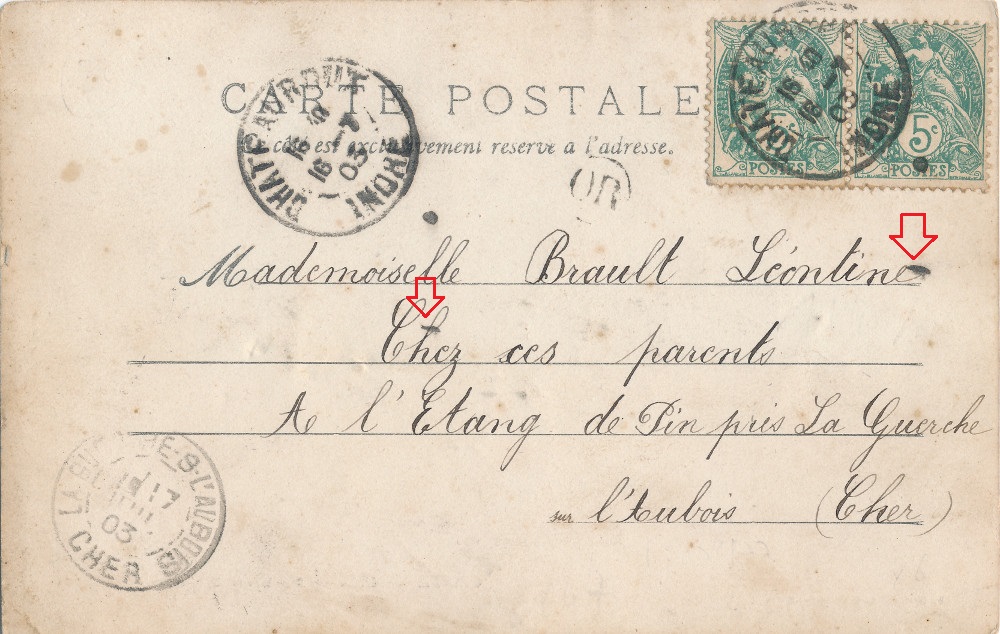 CARTE POSTALE
Ce côté est exclusivement réservé à l'adresse.
CHATEAUROUX
INDRE
16 03
CHATEAUROUX
INDRE
16 03
5c
POSTES POSTES
OR
Mademoiselle Brault Léontine
Chez ces parents
A l'Etang de Pin pris La Guerche
sur l'Aubois (Cher)
LA GUERCHE-S-L'AUBOIS
17
03
CHER